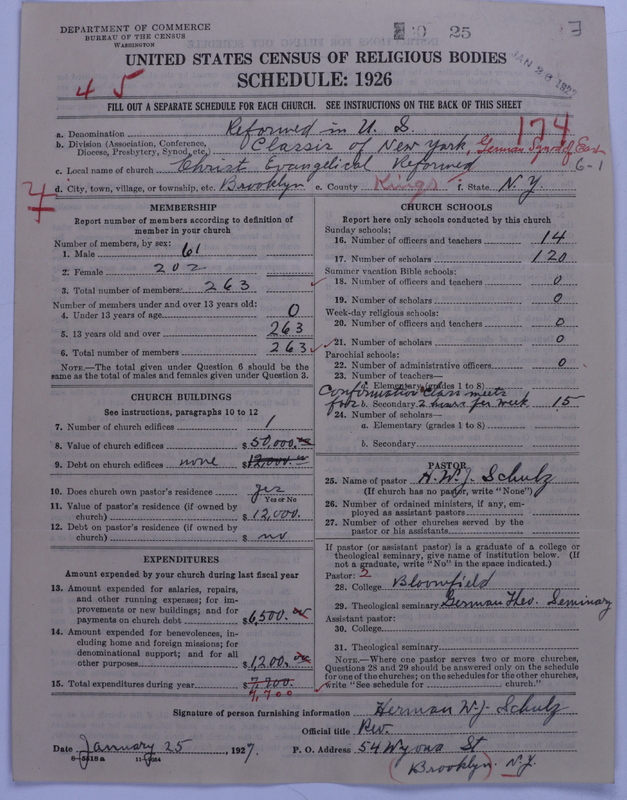 DEPARTMENT OF COMMERCE
BUREAU OF THE CENSUS
WASHINGTON
25
UNITED STATES CENSUS OF RELIGIOUS BODIES
SCHEDULE: 1926
4 5
FILL OUT A SEPARATE SCHEDULE FOR EACH CHURCH. SEE INSTRUCTIONS ON THE BACK OF THIS SHEET
174
a. Denomination Reformed in U. S.
b. Division (Association, Conference, Diocese, Presbytery, Synod, etc.) Classis of New York, German Synod of East
6-1
c. Local name of church Christ Evangelical Reformed
d. City, town, village, or township, etc. Brooklyn e. County Kings f. State N. Y.
MEMBERSHIP
Report number of members according to definition of
member in your church
Number of members, by sex:
1. Male 61
2. Female 202
3. Total number of members: 263
Number of members under and over 13 years old:
4. Under 13 years of age 0
5. 13 years old and over 263
6. Total number of members 263
NOTE.—The total given under Question 6 should be the
same as the total of males and females given under Question 3.
CHURCH BUILDINGS
See instructions, paragraphs 10 to 12
7. Number of church edifices 1
8. Value of church edifices $ 50,000.
9. Debt on church edifices none $ 12,000.
10. Does church own pastor's residence yes
Yes or No
11. Value of pastor's residence (if owned by
church) $ 12,000.
12. Debt on pastor's residence (if owned by
church) $ no
EXPENDITURES
Amount expended by your church during last fiscal year
13. Amount expended for salaries, repairs,
and other running expenses; for im-
provements or new buildings; and for
payments on church debt $ 6,500.
14. Amount expended for benevolences, in-
cluding home and foreign missions; for
denominational support; and for all
other purposes $ 1,200.
15. Total expenditures during year $ 7,700.
7,700
CHURCH SCHOOLS
Report here only schools conducted by this church
Sunday schools:
16. Number of officers and teachers 14
17. Number of scholars 120
Summer vacation Bible schools:
18. Number of officers and teachers 0
19. Number of scholars 0
Week-day religious schools:
20. Number of officers and teachers 0
21. Number of scholars 0
Parochial schools:
22. Number of administrative officers 0
23. Number of teachers—
a. Elementary (grades 1 to 8)
Confirmation Class meets
for 2 b. Secondary 2 hours per week 15
24. Number of scholars—
a. Elementary (grades 1 to 8)
b. Secondary
PASTOR
25. Name of pastor H. W. J. Schulz
(If church has no pastor, write "None")
26. Number of ordained ministers, if any, em-
ployed as assistant pastors
27. Number of other churches served by the
pastor or his assistants
If pastor (or assistant pastor) is a graduate of a college or
theological seminary, give name of institution below. (If
not a graduate, write "No" in the space indicated.)
Pastor: 2
28. College Bloomfield
29. Theological seminary German Theo. Seminary
Assistant pastor:
30. College
31. Theological seminary
NOTE.—Where one pastor serves two or more churches,
Questions 28 and 29 should be answered only on the schedule
for one of the churches; on the schedules for the other churches,
write "See schedule for church."
Signature of person furnishing information Herman W. J. Schulz
Official title Rev.
Date January 25, 1927. P. O. Address 54 Wyona St
(Brooklyn) N. Y.